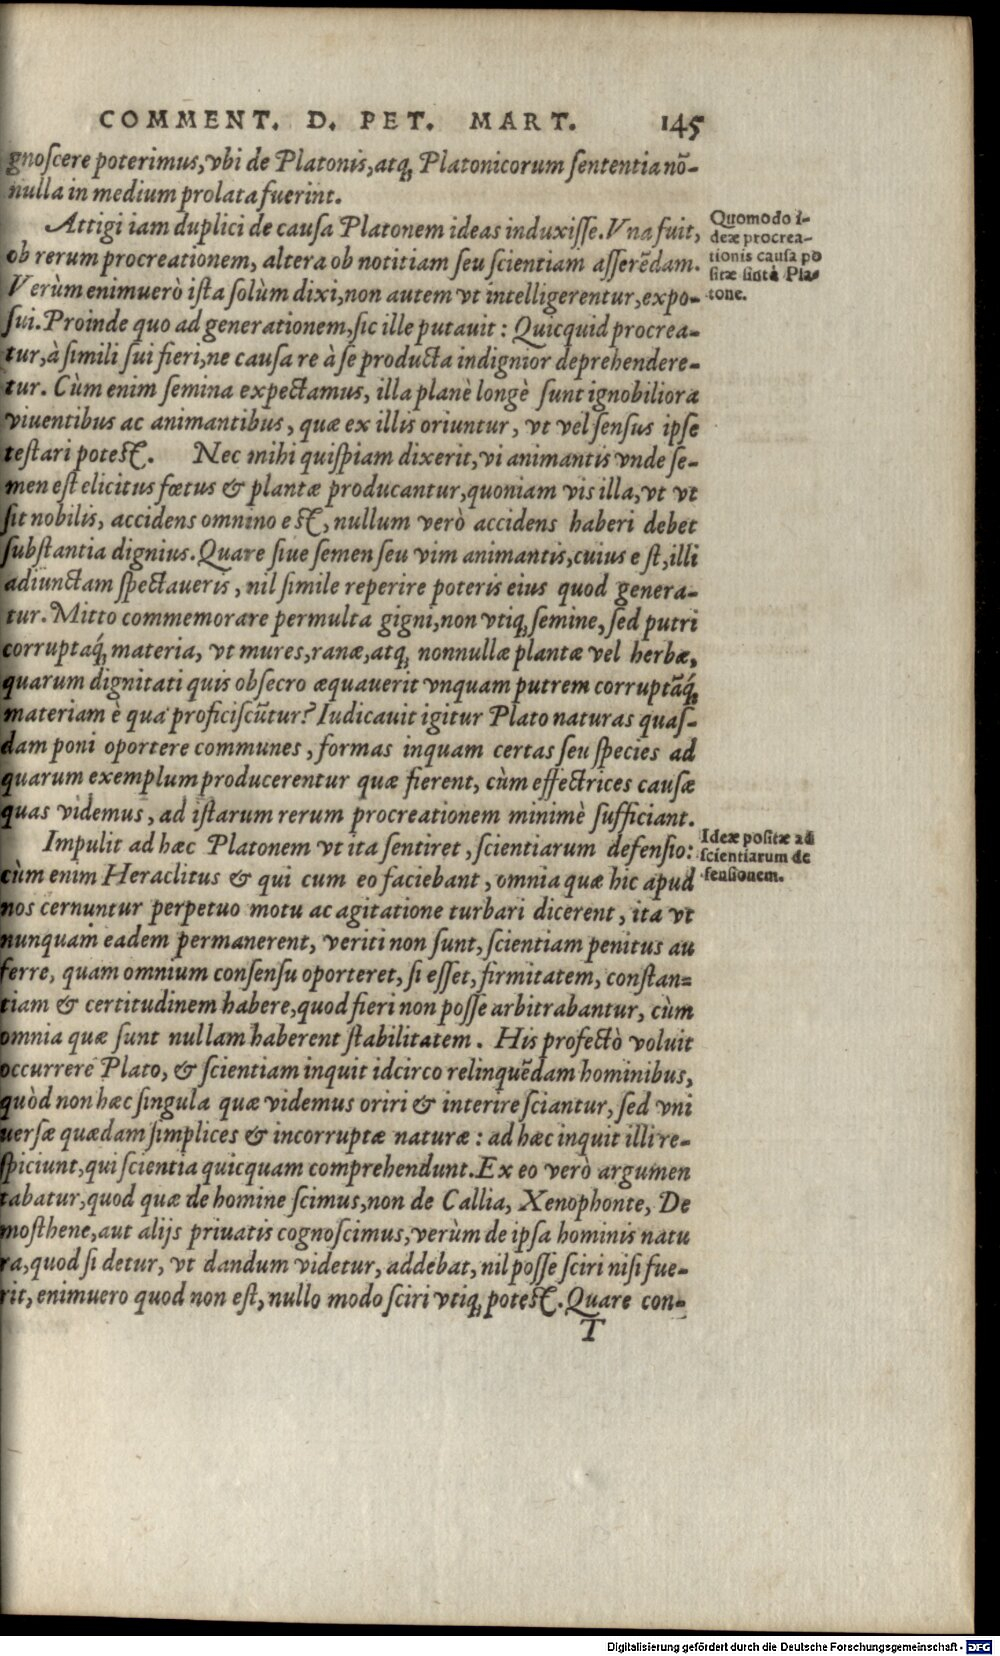 COMMENT. D. PET. MART. 145
gnoſcere poterimus, vbi de Platonis, atq́; Platonicorum ſententia nō-
nulla in medium prolata fuerint.
Attigi iam duplici de cauſa Platonem ideas induxiſſe. Vna fuit,
ob rerum procreationem, altera ob notitiam ſeu ſcientiam aſſerēdam.
Verùm enimuerò iſta ſolùm dixi, non autem vt intelligerentur, expo-
ſui. Proinde quo ad generationem, ſic ille putauit: Quicquid procrea-
tur, à ſimili ſui fieri, ne cauſa re à ſe producta indignior deprehendere-
tur. Cùm enim ſemina expectamus, illa planè longè ſunt ignobiliora
viuentibus ac animantibus, quæ ex illis oriuntur, vt vel ſenſus ipſe
teſtari poteſt. Nec mihi quiſpiam dixerit, vi animantis vnde ſe-
men eſt elicitus fœtus & plantæ producantur, quoniam vis illa, vt vt
ſit nobilis, accidens omnino eſt, nullum verò accidens haberi debet
ſubſtantia dignius. Quare ſiue ſemen ſeu vim animantis, cuius eſt, illi
adiunctam ſpectaueris, nil ſimile reperire poteris eius quod genera-
tur. Mitto commemorare permulta gigni, non vtiq; ſemine, ſed putri
corruptaq́; materia, vt mures, ranæ, atq; nonnullæ plantæ vel herbæ,
quarum dignitati quis obſecro æquauerit vnquam putrem corruptāq́;
materiam è qua proficiſcūtur? Iudicauit igitur Plato naturas quaſ-
dam poni oportere communes, formas inquam certas ſeu ſpecies ad
quarum exemplum producerentur quæ fierent, cùm effectrices cauſæ
quas videmus, ad iſtarum rerum procreationem minimè ſufficiant.
Impulit ad hæc Platonem vt ita ſentiret, ſcientiarum defenſio:
cùm enim Heraclitus & qui cum eo faciebant, omnia quæ hic apud
nos cernuntur perpetuo motu ac agitatione turbari dicerent, ita vt
nunquam eadem permanerent, veriti non ſunt, ſcientiam penitus au
ferre, quam omnium conſenſu oporteret, ſi eſſet, firmitatem, conſtan-
tiam & certitudinem habere, quod fieri non poſſe arbitrabantur, cùm
omnia quæ ſunt nullam haberent ſtabilitatem. His profectò voluit
occurrere Plato, & ſcientiam inquit idcirco relinquēdam hominibus,
quòd non hæc ſingula quæ videmus oriri & interire ſciantur, ſed vni
uerſæ quædam ſimplices & incorruptæ naturæ: ad hæc inquit illi re-
ſpiciunt, qui ſcientia quicquam comprehendunt. Ex eo verò argumen
tabatur, quod quæ de homine ſcimus, non de Callia, Xenophonte, De
moſthene, aut alijs priuatis cognoſcimus, verùm de ipſa hominis natu
ra, quod ſi detur, vt dandum videtur, addebat, nil poſſe ſciri niſi fue-
rit, enimuero quod non eſt, nullo modo ſciri vtiq; poteſt. Quare con-
T
Quomodo i-
deæ procrea-
tionis cauſa po
ſitæ ſint à Pla-
tone.
Ideæ poſitæ ad
ſcientiarum de
fenſionem.
Digitalisierung gefördert durch die Deutsche Forschungsgemeinschaft - DFG